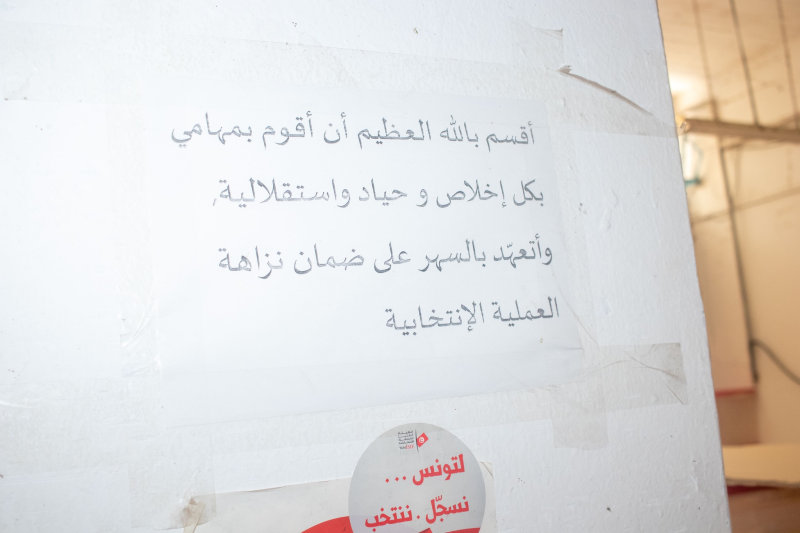 أقسم بالله العظيم أن أقوم بمهامي
بكل إخلاص و حياد واستقلالية,
وأتعهّد بالسهر على ضمان نزاهة
العملية الإنتخابية
لتونس ...
نسجّل . ننتخب